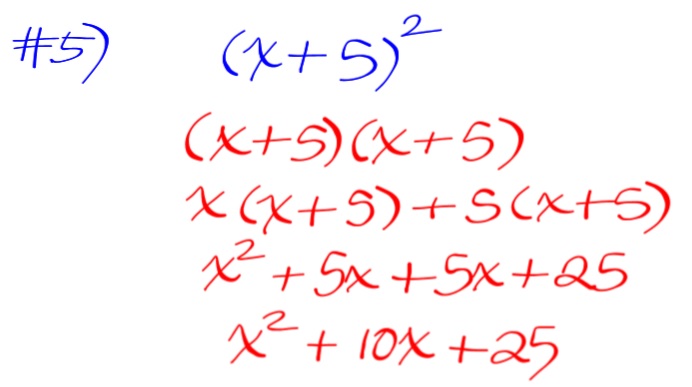 #5) (x+5)²
(x+5)(x+5)
x(x+5)+5(x+5)
x²+5x+5x+25
x²+10x+25